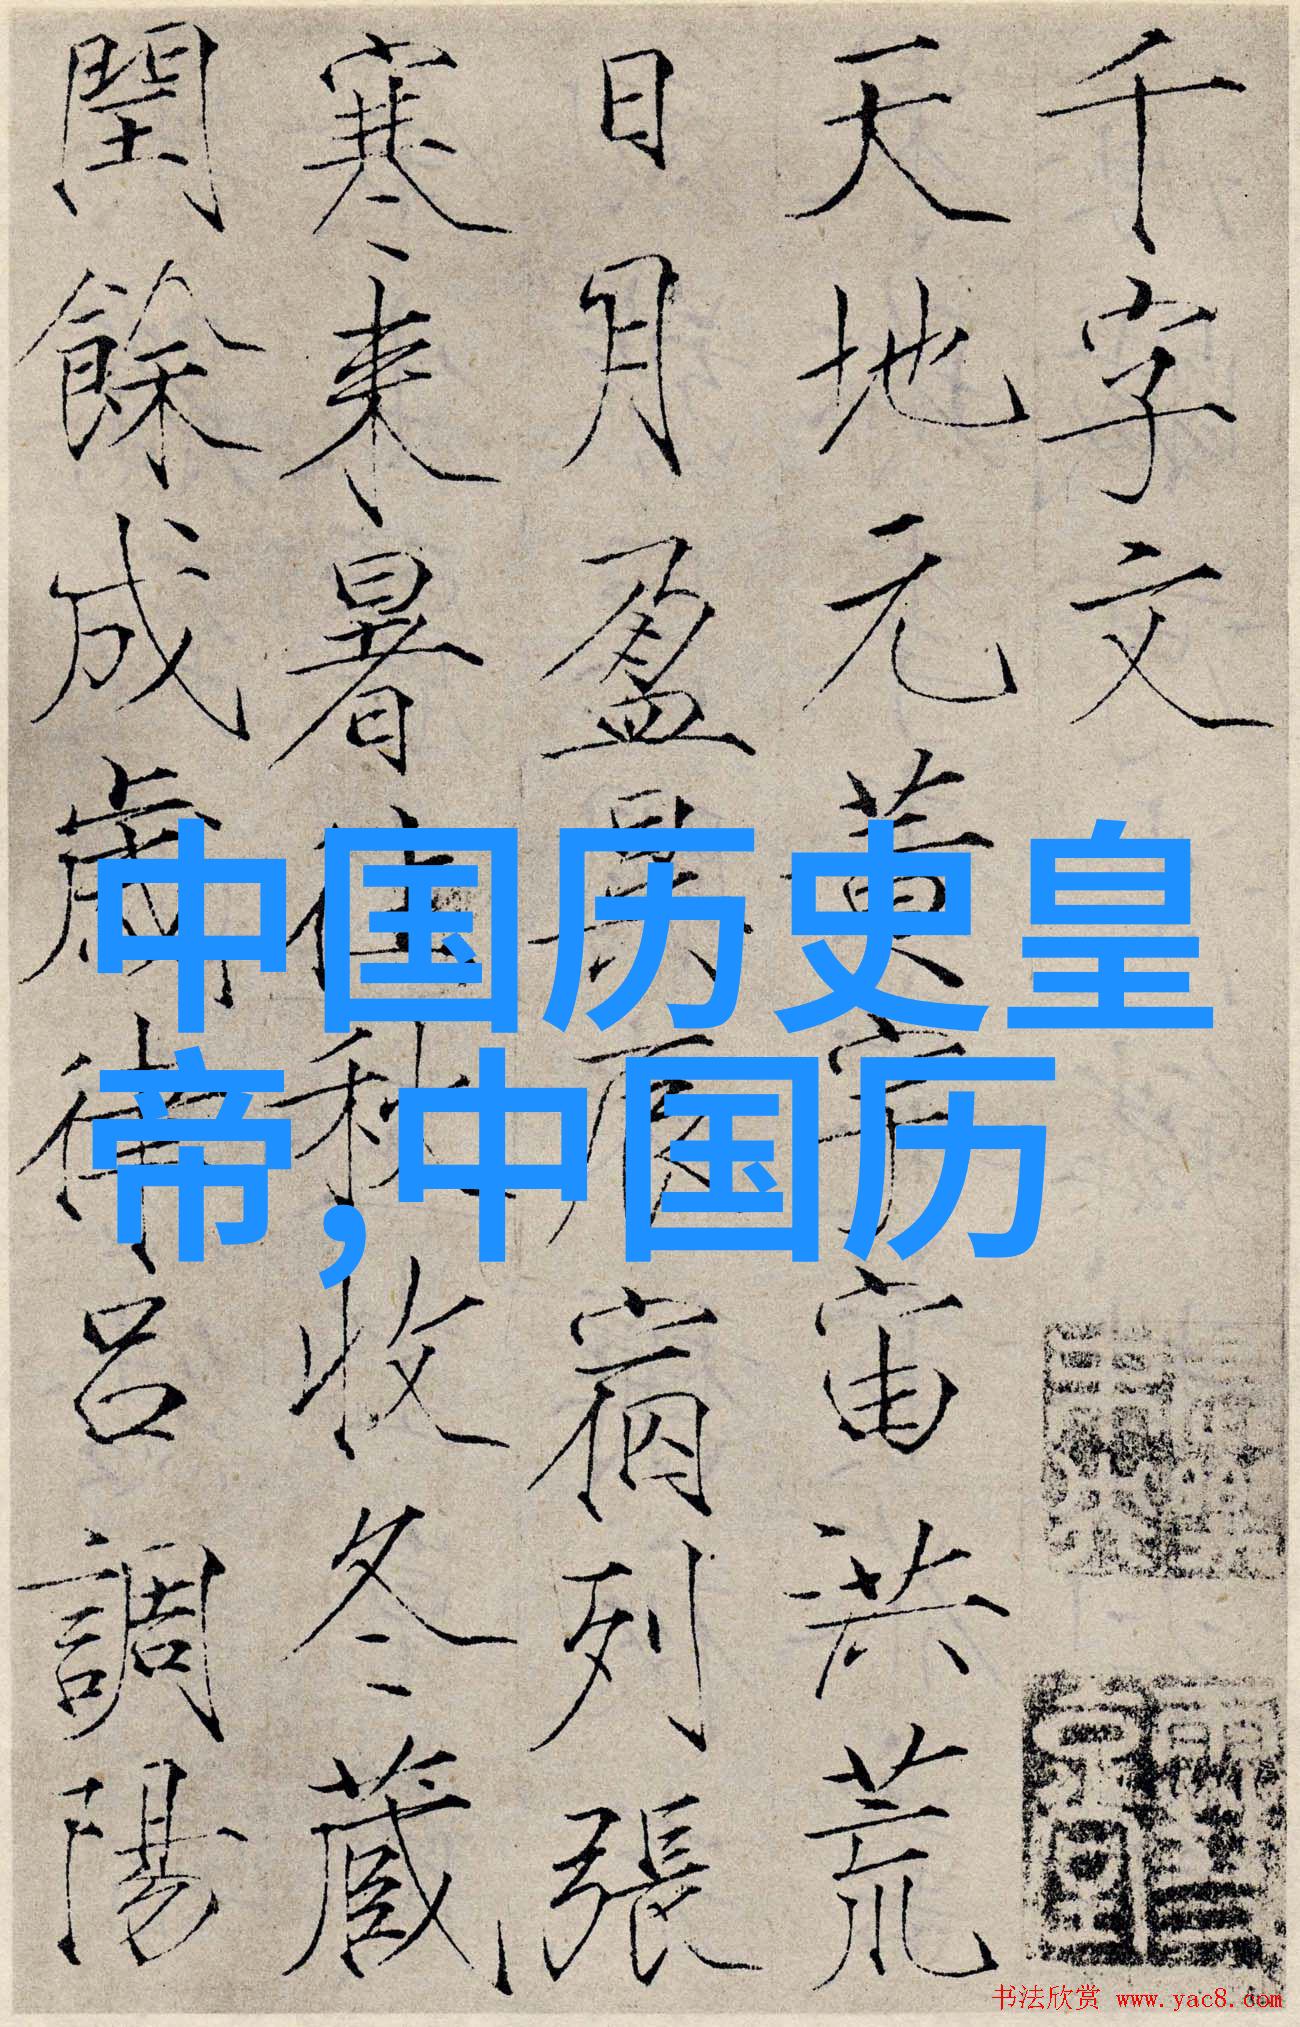 千字文
天地元黄宇宙洪荒
日月盈昃辰宿列張
寒来暑往秋收冬蔵
閏餘成歲律吕調陽
中国历史皇
帝,中国历
书法欣赏 www.yac8.com